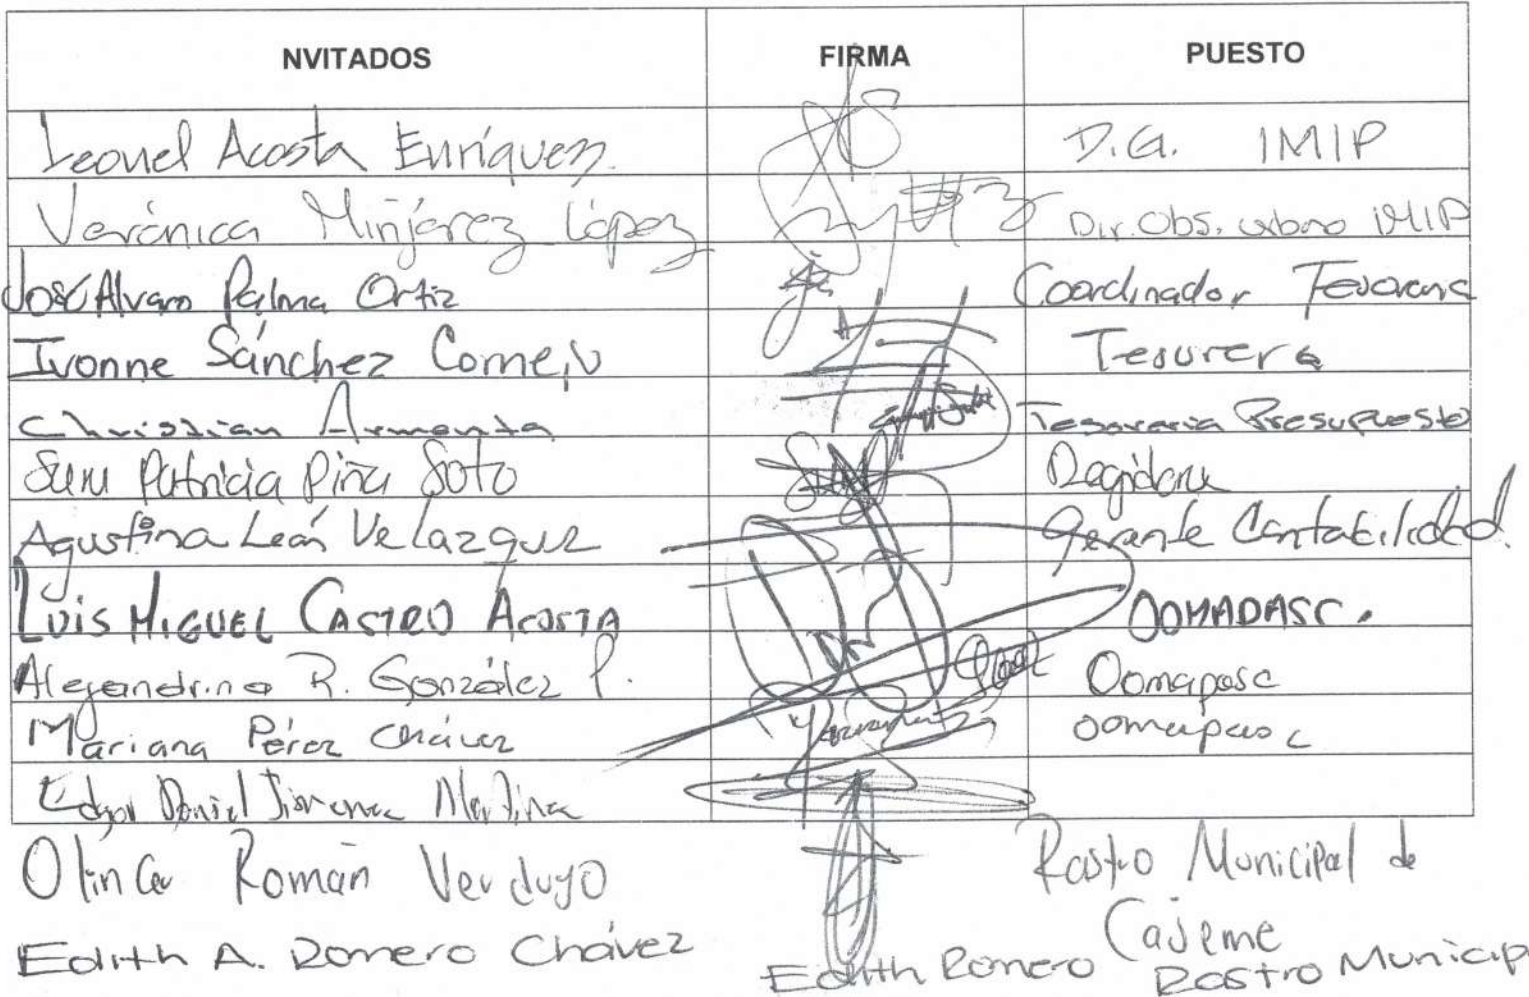 NVITADOS FIRMA PUESTO
Leonel Acosta Enríquez. D.G. IMIP
Verónica Minjarez López Dir. Obs. urbano IMIP
José Alvaro Palma Ortiz Coordinador
Ivonne Sánchez Cornejo Tesorera
Christian Armenta Tesoreria Presupuesto
Patricia Piña Soto Regidora
Agustina León Velazquez Gerente Contabilidad.
LUIS MIGUEL CASTRO ACOSTA OOMAPASC.
Alejandrina R. González P. Oomapasc
Mariana Pérez Chávez oomapasc
Edgar Daniel Jimenez Martinez
Olinca Román Verdugo Rastro Municipal de
Cajeme
Edith A. Romero Chávez Edith Romero Rastro Municip